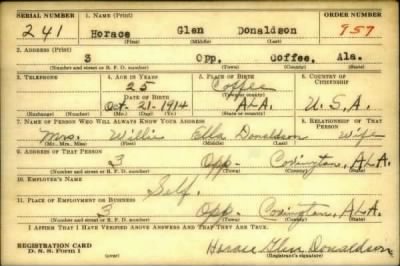 SERIAL NUMBER 1. NAME (Print) ORDER NUMBER
241 Horace Glen Donaldson 957
(First) (Middle) (Last)
2. ADDRESS (Print)
3 Opp, Coffee, Ala.
(Number and street or R. F. D. number) (Town) (County) (State)
3. TELEPHONE 4. AGE IN YEARS 5. PLACE OF BIRTH 6. COUNTRY OF CITIZENSHIP
25 Coffee
DATE OF BIRTH (Town or county)
Oct. 21-1914 ALA. U.S.A.
(Exchange) (Number) (Mo.) (Day) (Yr.) (State or country)
7. NAME OF PERSON WHO WILL ALWAYS KNOW YOUR ADDRESS 8. RELATIONSHIP OF THAT PERSON
Mrs. Willie Ella Donaldson Wife
(Mr., Mrs., Miss) (First) (Middle) (Last)
9. ADDRESS OF THAT PERSON
3 Opp - Covington, ALA.
(Number and street or R. F. D. number) (Town) (County) (State)
10. EMPLOYER'S NAME
Self.
11. PLACE OF EMPLOYMENT OR BUSINESS
3 Opp - Covington, ALA.
(Number and street or R. F. D. number) (Town) (County) (State)
I AFFIRM THAT I HAVE VERIFIED ABOVE ANSWERS AND THAT THEY ARE TRUE.
REGISTRATION CARD
D. S. S. Form 1 Horace Glen Donaldson
(Registrant's signature)